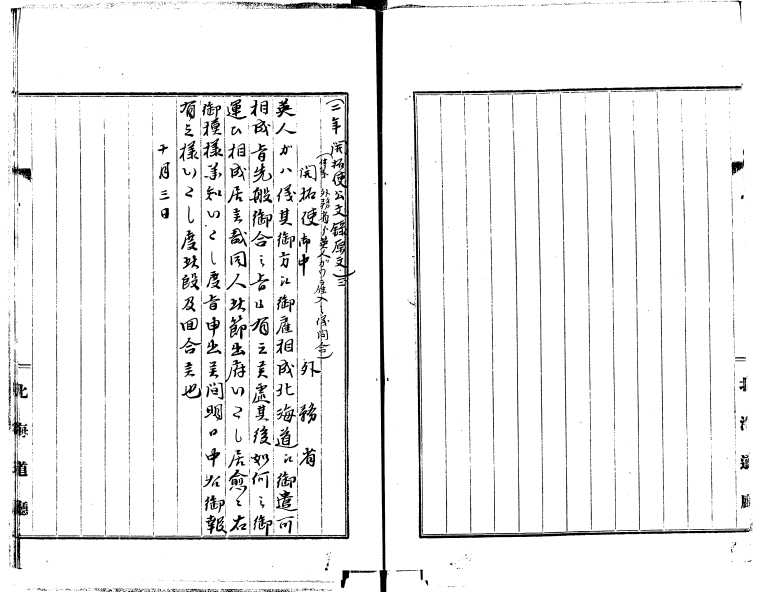 (二年開拓使公文録原文)三
(件名 外務省ゟ英人ガワ雇入之儀問合)
開拓使御中 外務省
英人ガハ儀其御方ニ御雇相成北海道ニ御遣可
相成旨先般御合之旨も有之候處其後如何之御
運ひ相成居候哉同人此節出府いたし居愈之右
御模様承知いたし度旨申出候間明日中ニ御報
有之様いたし度此段及回合候也
十月三日
北海道廳
北海道廳